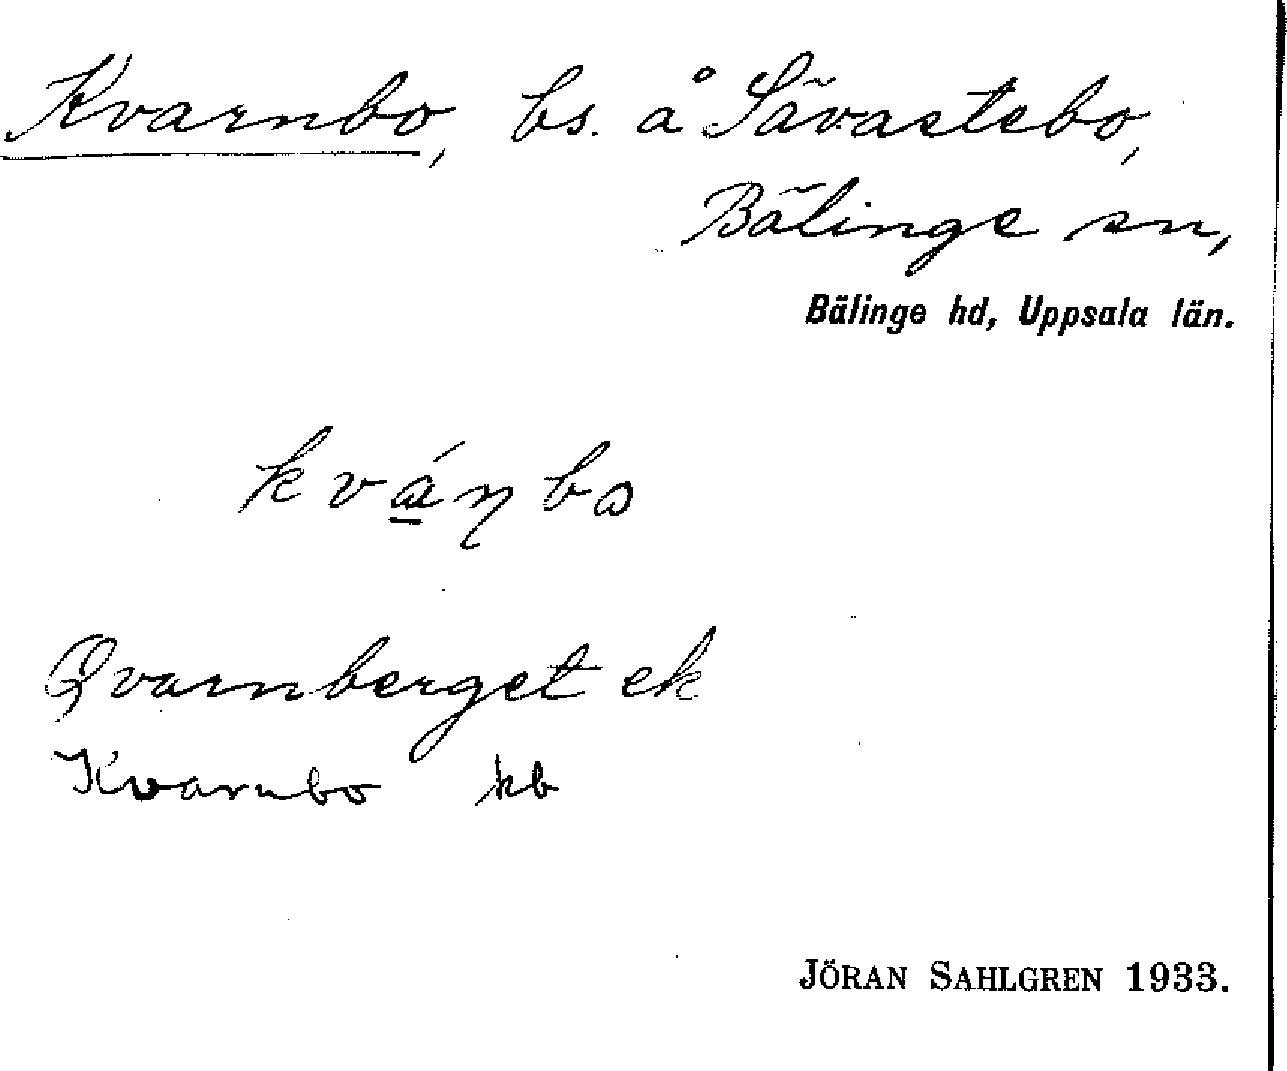 Kvarnbo, bs. å Sävastebo,
Bälinge sn,
Bälinge hd, Uppsala län.
kvá̱ɳbo
Qvarnberget ek
Kvarnbo hb
JÖRAN SAHLGREN 1933.